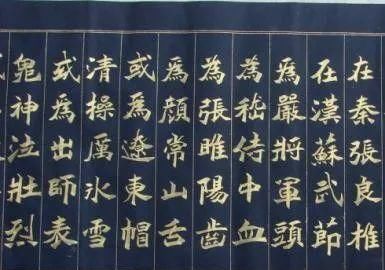 在秦張良椎
在漢蘇武節
為嚴將軍頭
為嵇侍中血
為張睢陽齒
為顏常山舌
或為遼東帽
清操厲冰雪
或為出師表
鬼神泣壯烈